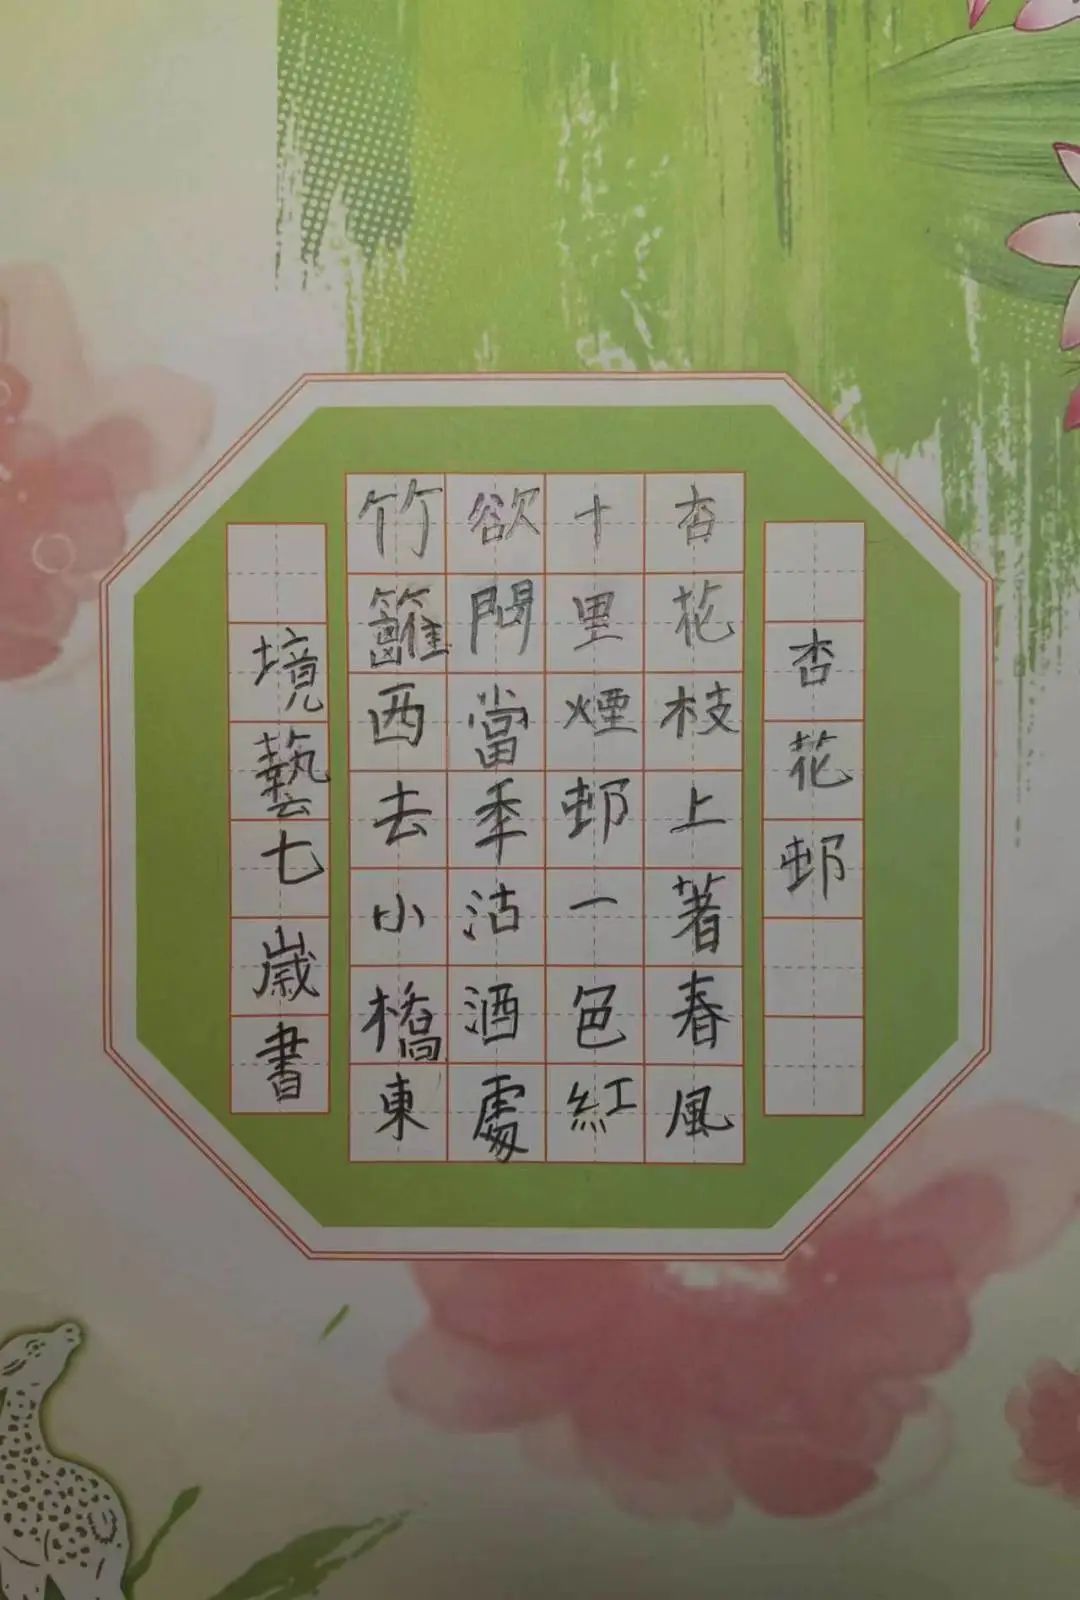 杏花邨
杏花枝上著春風
十里煙邨一色紅
欲問當季沽酒處
竹籬西去小橋東
境藝七歲書